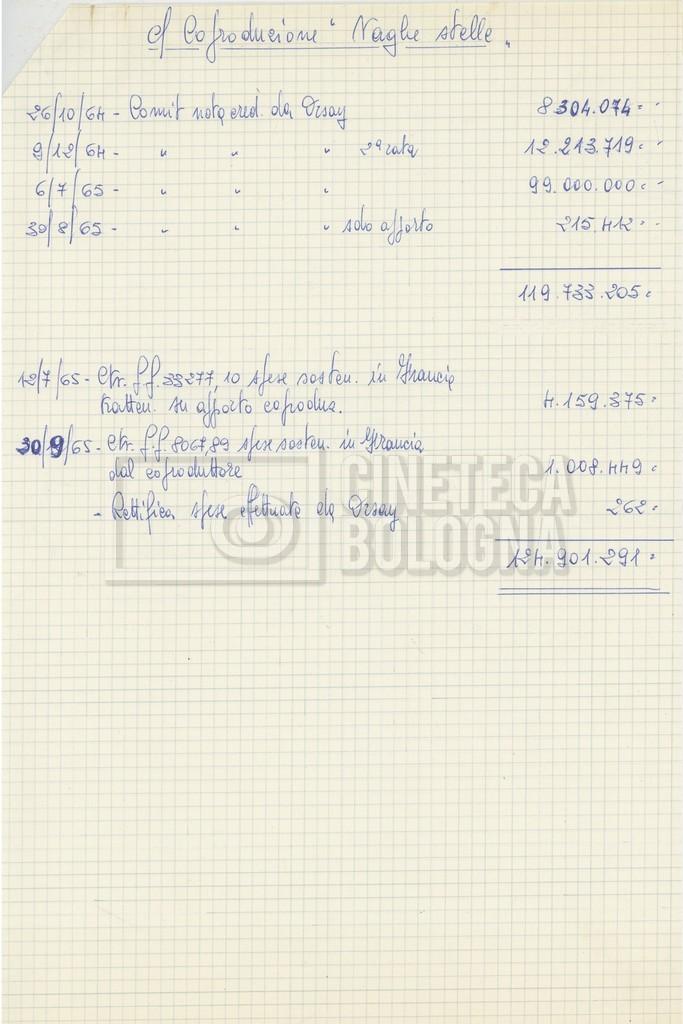 c/ Coproduzione "Vaghe stelle"
26/10/64 - Comit nota cred. da Orsay 8304.074=
9/12/64 - " " " 2ª rata 12.213.719=
6/7/65 - " " " 99.000.000=
30/8/65 - " " " saldo apporto 215.412=
119.733.205=
12/7/65 - Ctr. f.f. 33277,10 spese sosten. in Francia
tratten. su apporto coproduz. 4.159.375=
30/9/65 - Ctr. f.f. 8067,89 spese sosten. in Francia
dal coproduttore 1.008.449=
- Rettifica spese effettuate da Orsay 262=
124.901.291=
CINETECA
BOLOGNA